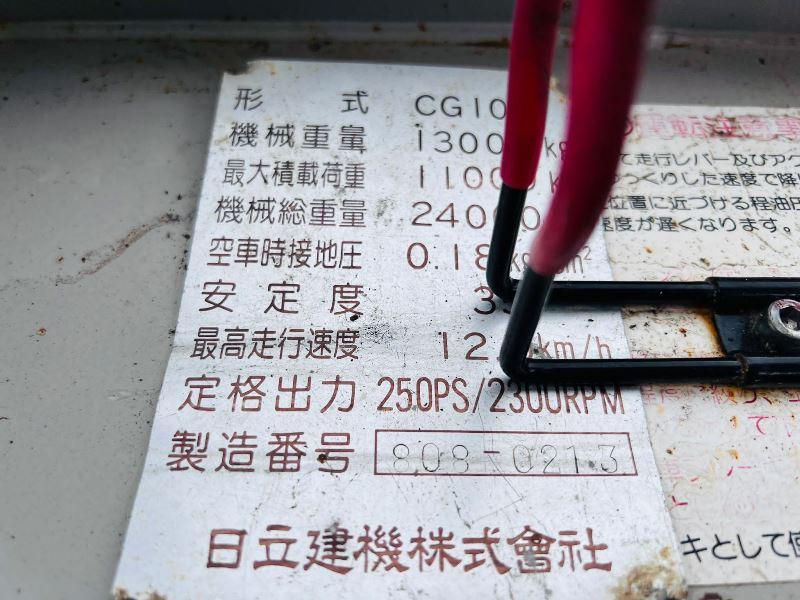 形式 CG10
機械重量 1300 kg
最大積載荷重 1100
機械総重量 2400
空車時接地圧 0.18
安定度 3
最高走行速度 12 km/h
定格出力 250PS/2300RPM
製造番号 808-0213
日立建機株式會社
て走行レバー及びアク
っくりした速度で降
位置に近づける程油圧
速度が遅くなります。
キとして使